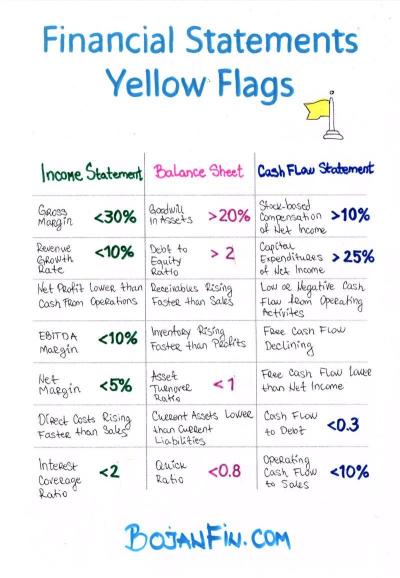 Financial Statements
Yellow Flags
Income Statement
Balance Sheet
Cash Flow Statement
Gross
Margin
<30%
Goodwill
in Assets
>20%
Stock-based
Compensation
of Net Income
>10%
Revenue
Growth
Rate
<10%
Debt to
Equity
Ratio
> 2
Capital
Expenditures
of Net Income
>25%
Net Profit Lower than
Cash From Operations
Receivables Rising
Faster than Sales
Low or Negative Cash
Flow from Operating
Activites
EBITDA
Margin
<10%
Inventory Rising
Faster than Profits
Free Cash Flow
Declining
Net
Margin
<5%
Asset
Turnover
Ratio
<1
Free Cash Flow Lower
than Net Income
Direct Costs Rising
Faster than Sales
Current Assets Lower
than Current
Liabilities
Cash Flow
to Debt
<0.3
Interest
Coverage
Ratio
<2
Quick
Ratio
<0.8
Operating
Cash Flow
to Sales
<10%
BOJANFIN.COM